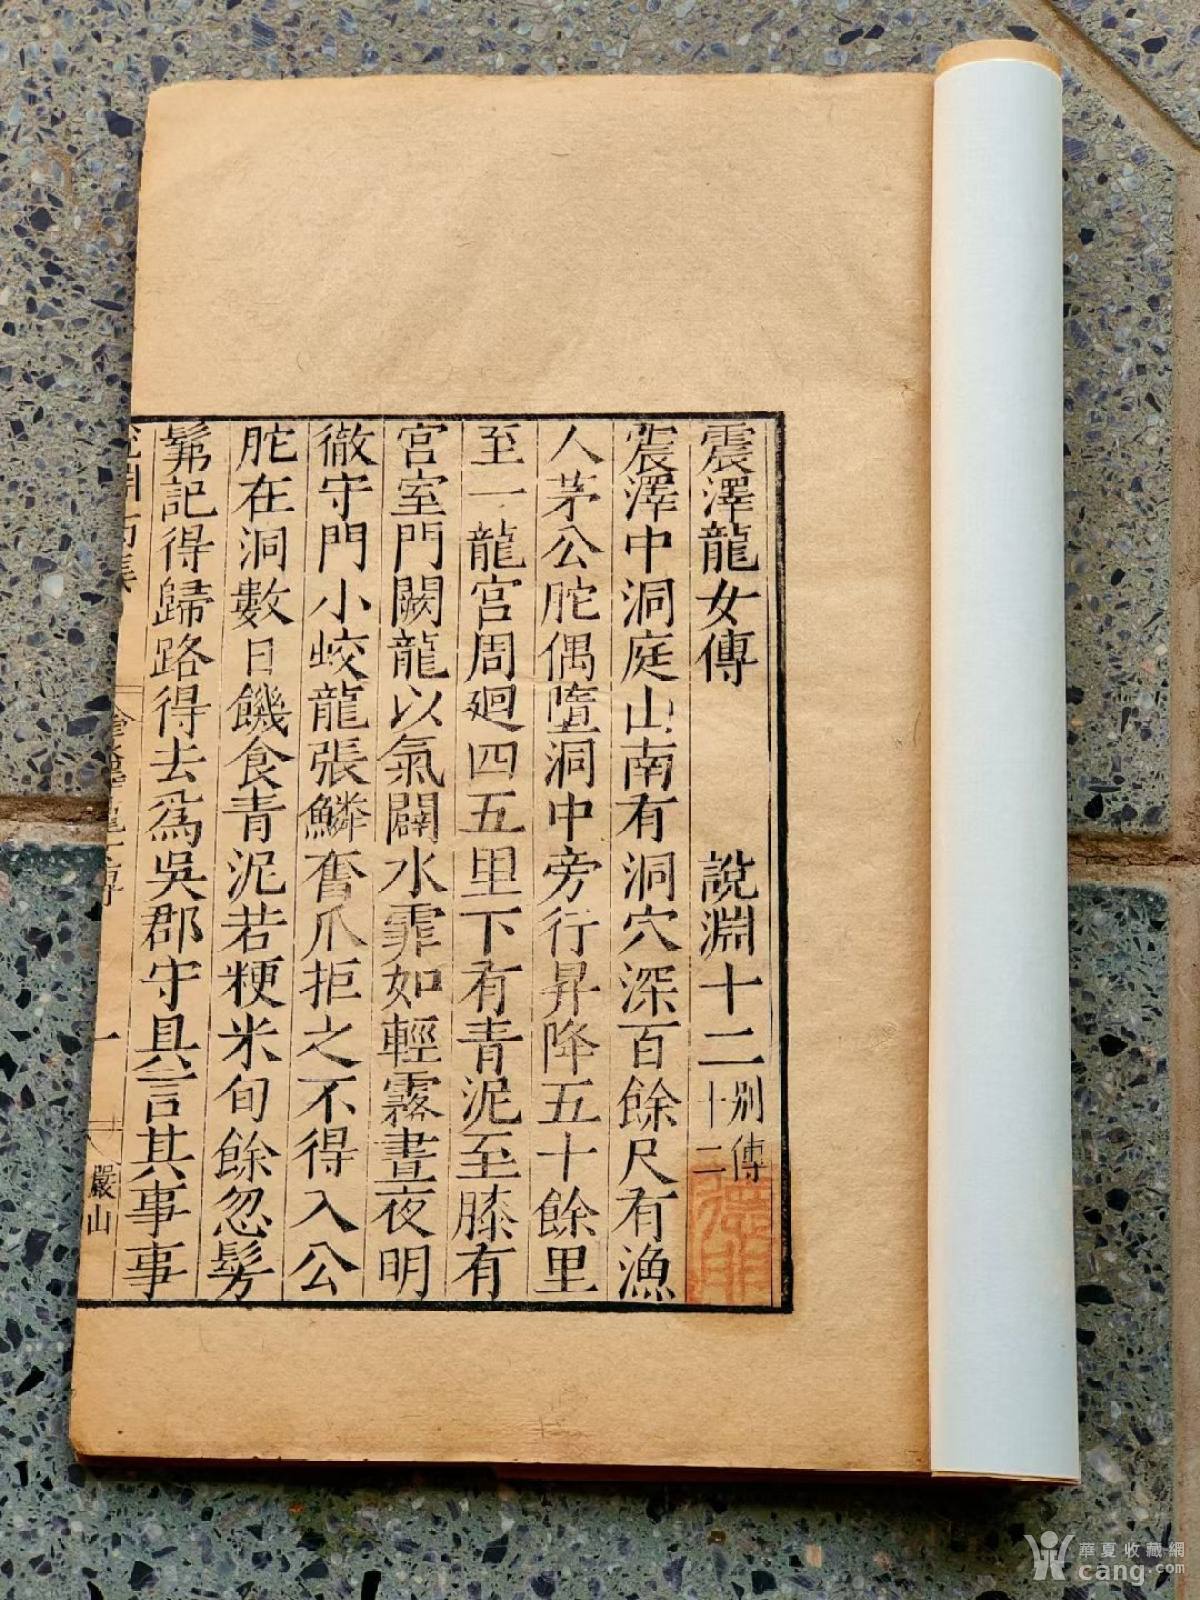 震澤龍女傳 說淵十二 別傳十二
震澤中洞庭山南有洞穴深百餘尺有漁
人茅公䑨偶墮洞中旁行昇降五十餘里
至一龍宮周迴四五里下有青泥至膝有
宮室門闕龍以氣闢水霏如輕霧晝夜明
徹守門小蛟龍張鱗奮爪拒之不得入公
䑨在洞數日饑食青泥若粳米旬餘忽髣
髴記得歸路得去爲吳郡守具言其事事
一
嚴山
華夏收藏網
cang.com